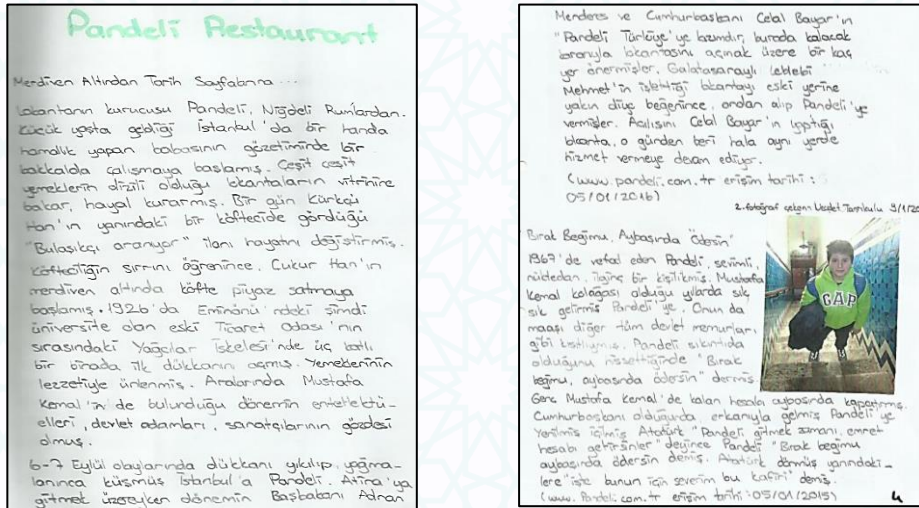 Pandeli Restaurant
Merdiven Altından Tarih Sayfalarına ...
Lokantanın kurucusu Pandeli, Niğdeli Rumlardan.
Küçük yaşta geldiği İstanbul'da bir handa
hamallık yapan babasının gözetiminde bir
bakkalda çalışmaya başlamış. Çeşit çeşit
yemeklerin dizili olduğu lokantaların vitrinine
bakar, hayal kurarmış. Bir gün Kürkçü
Han'ın yanındaki bir köftecide gördüğü
"Bulaşıkçı aranıyor" ilanı hayatını değiştirmiş.
Köfteciliğin sırrını öğrenince, Çukur Han'ın
merdiven altında köfte piyaz satmaya
başlamış. 1926'da Eminönü'ndeki şimdi
üniversite olan eski Ticaret Odası'nın
sırasındaki Yağcılar İskelesi'nde üç katlı
bir binada ilk dükkanını açmış. Yemeklerinin
lezzetiyle ünlenmiş. Aralarında Mustafa
Kemal'in de bulunduğu dönemin entellektü-
elleri, devlet adamları, sanatçılarının gözdesi
olmuş.
6-7 Eylül olaylarında dükkanı yıkılıp, yağma-
lanınca küsmüş İstanbul'a Pandeli. Atina'ya
gitmek üzereyken dönemin Başbakanı Adnan
Menderes ve Cumhurbaşkanı Celal Bayar'ın
"Pandeli Türkiye'ye lazımdır, burada kalacak
kararıyla lokantasını açmak üzere bir kaç
yer önermişler. Galatasaraylı leblebi
Mehmet'in işlettiği lokantayı eski yerine
yakın diye beğenince, ondan alıp Pandeli'ye
vermişler. Açılışını Celal Bayar'ın yaptığı
lokanta, o günden beri hala aynı yerde
hizmet vermeye devam ediyor.
(www.pandeli.com.tr erişim tarihi :
05/01/2016)
2. fotoğraf çeken: 9/1/20
Bırak Beğimu, Aybaşında Ödersin"
1967'de vefat eden Pandeli, sevimli,
nüktedan, ilginç bir kişilikmiş. Mustafa
Kemal kolağası olduğu yıllarda sık
sık gelirmiş Pandeli'ye. Onun da
maaşı diğer tüm devlet memurları
gibi kısıtlıymış. Pandeli sıkıntıda
olduğunu hissettiğinde "Bırak
beğimu, aybaşında ödersin" dermiş.
Genç Mustafa Kemal'de kalan hesabı aybaşında kapatırmış.
Cumhurbaşkanı olduğunda, erkanıyla gelmiş Pandeli'ye
Yenilmiş içilmiş Atatürk "Pandeli, gitmek zamanı, emret
hesabı getirsinler" deyince Pandeli "Bırak beğimu
aybaşında ödersin demiş. Atatürk dönmüş yanındaki-
lere "işte bunun için severim bu kafiri" demiş.
(www.Pandeli.com.tr erişim tarihi:05/01/2015)
4
GAP